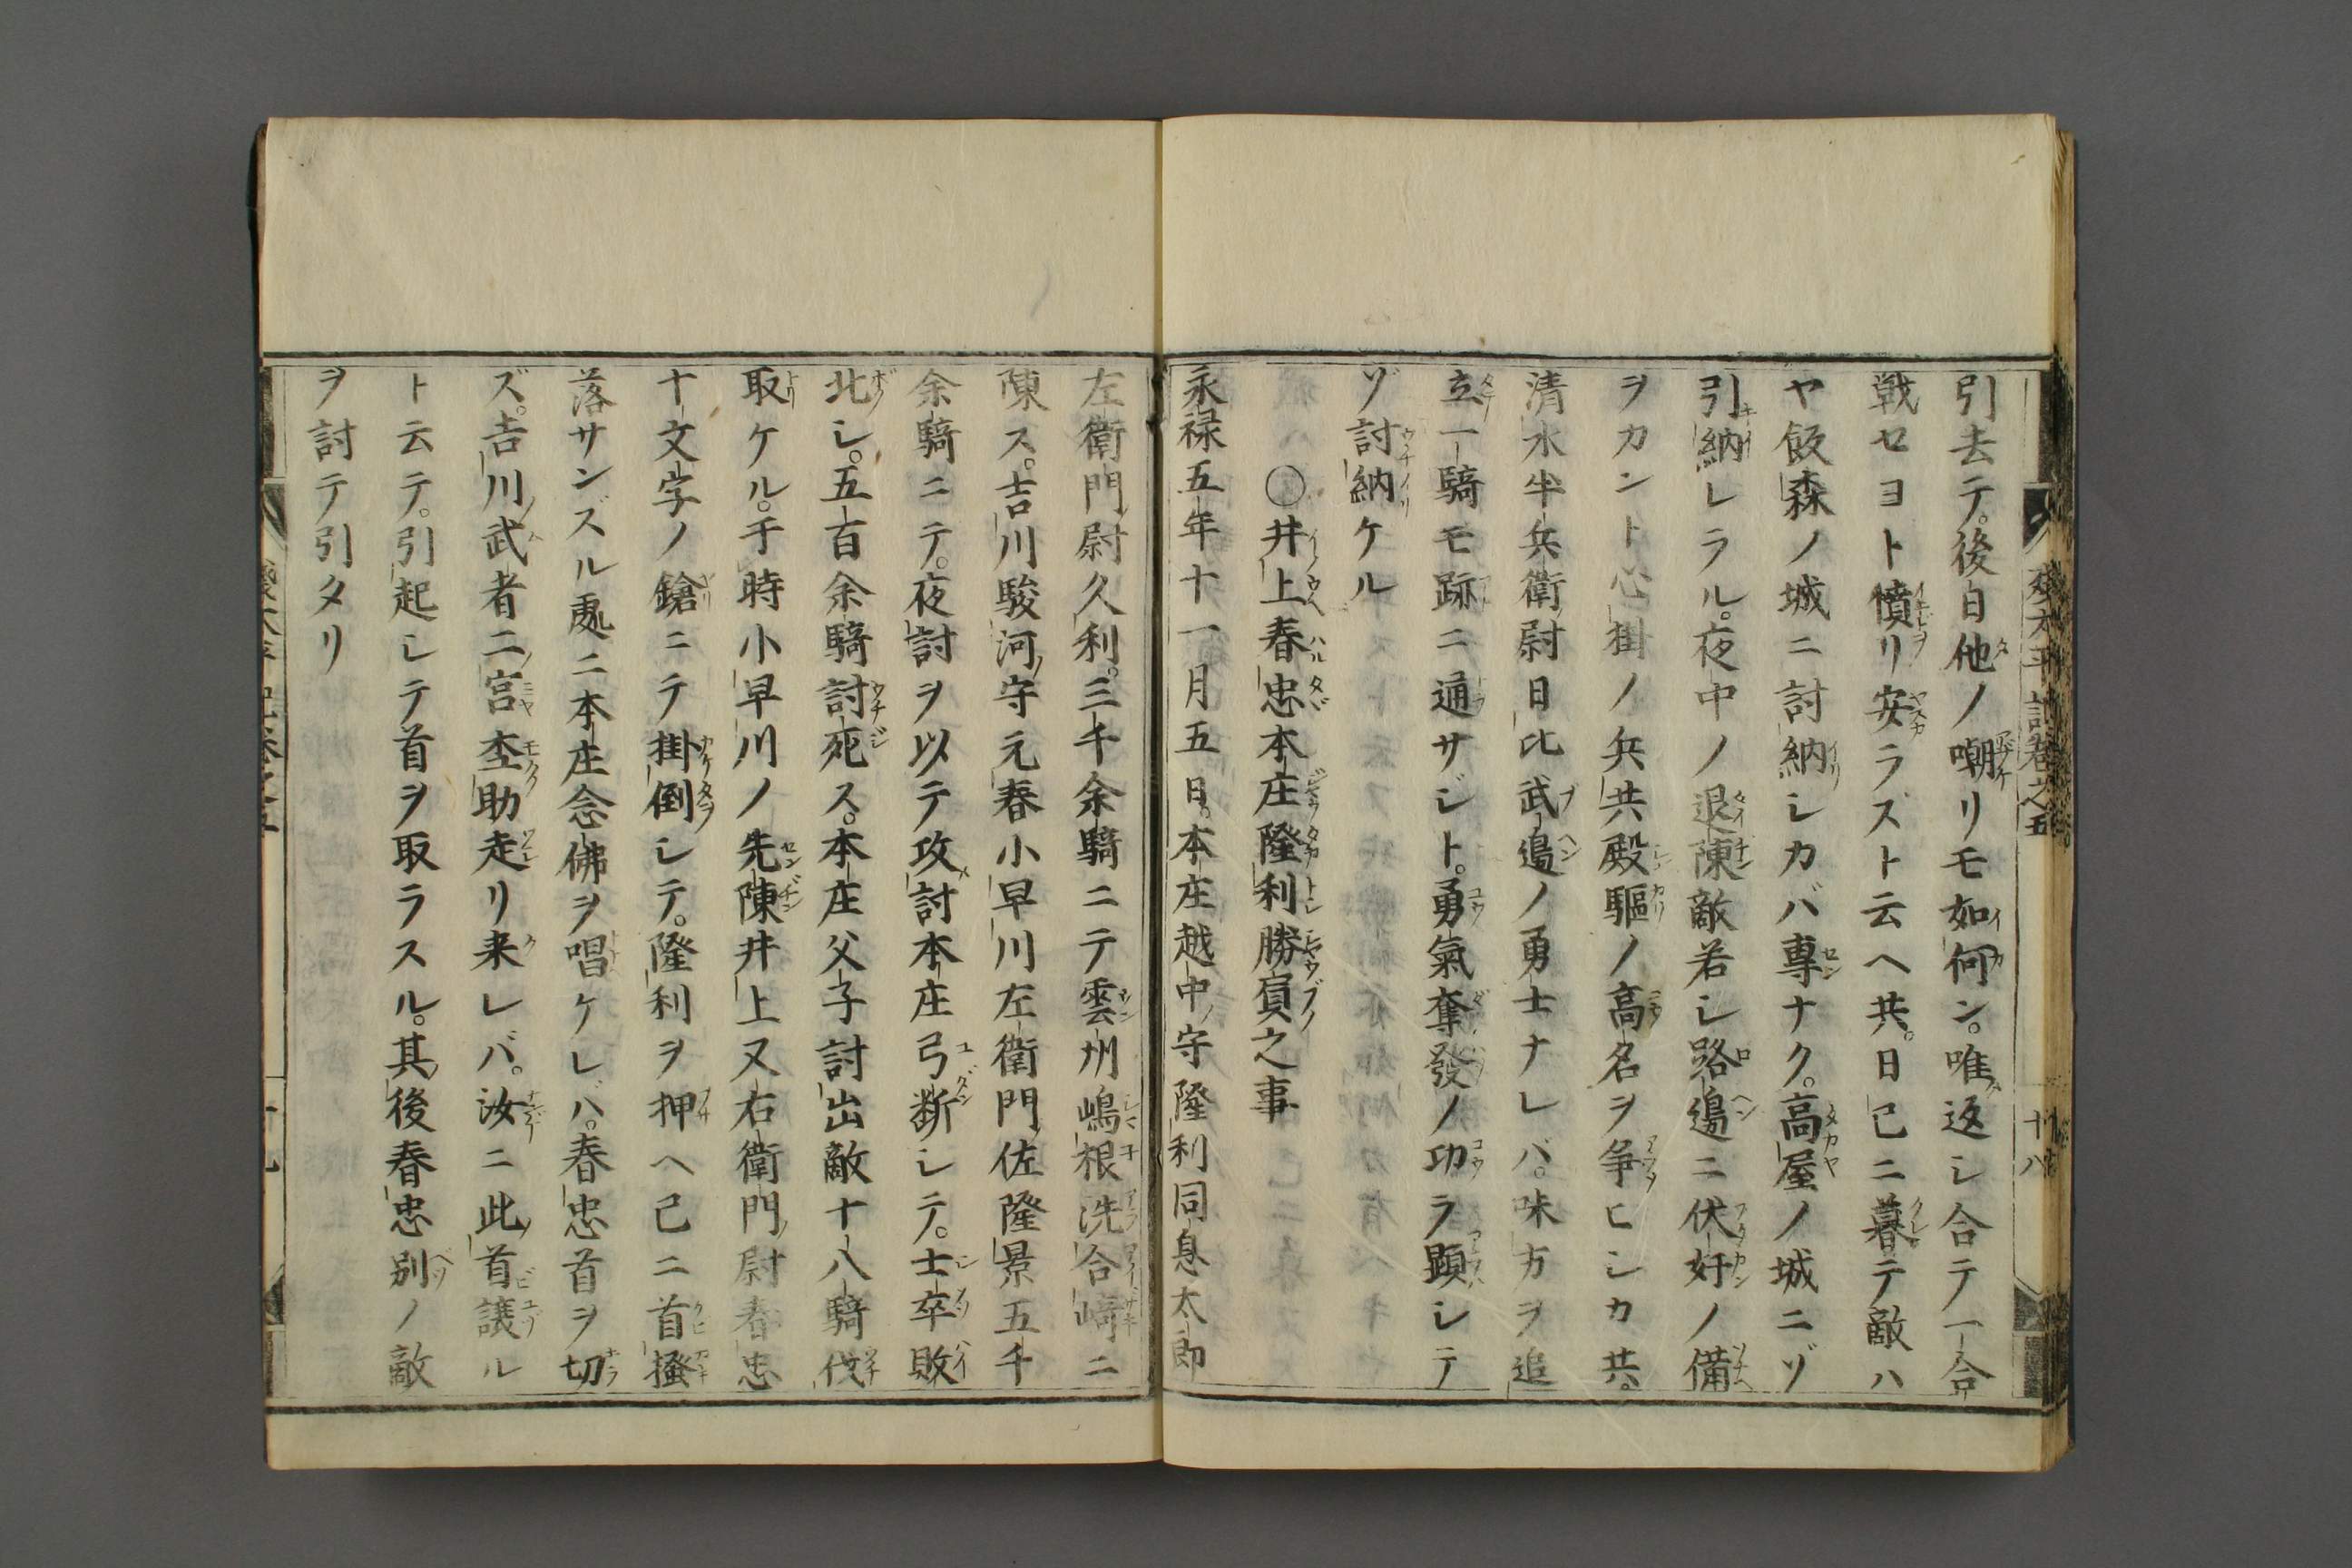 引去テ。後日他ノ嘲リモ如何ン。唯返シ合テ一合
戦セヨト憤リ安ラズト云ヘ共。日已ニ暮テ敵ハ
ヤ飯森ノ城ニ討納シカバ専ナク。高屋ノ城ニゾ
引納レラル。夜中ノ退陳敵若シ路邉ニ伏奸ノ備
ヲカント心掛ノ兵共殿驅ノ高名ヲ争ヒシカ共。
清水半兵衛尉日比武邉ノ勇士ナレバ。味方ヲ追
立一騎モ跡ニ通サジト。勇氣奪發ノ功ヲ顕シテ
ゾ討納ケル
〇井上春忠本庄隆利勝負之事
永禄五年十一月五日。本庄越中守隆利同息太郎
左衛門尉久利。三千余騎ニテ雲州嶋根洗合﨑ニ
陳ス。吉川駿河守元春小早川左衛門佐隆景五千
余騎ニテ。夜討ヲ以テ攻討本庄弓断シテ。士卒敗
北シ。五百余騎討死ス。本庄父子討出敵十八騎伐
取ケル。于時小早川ノ先陳井上又右衛門尉春忠
十文字ノ鎗ニテ掛倒シテ。隆利ヲ押ヘ已ニ首掻
落サンズル處ニ本庄念佛ヲ唱ケレバ。春忠首ヲ切
ズ。吉川武者二宮杢助走リ来レバ。汝ニ此首譲ル
ト云テ。引起シテ首ヲ取ラスル。其後春忠別ノ敵
ヲ討テ引タリ